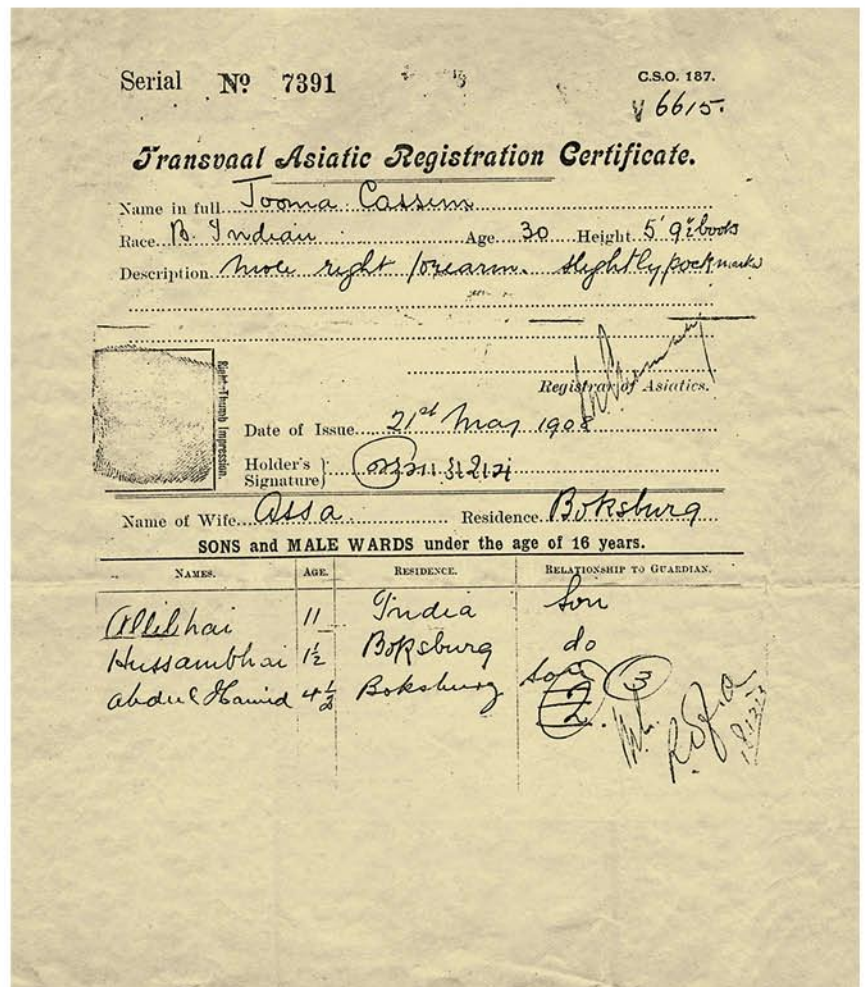 Serial Nº 7391
C.S.O. 187.
V 6615.
Transvaal Asiatic Registration Certificate.
Name in full Jooma Cassim
Race B. Indian Age 30 Height 5' 9½" boots
Description Mole right forearm. Slightly pock marks
Right-Thumb Impression.
Registrar of Asiatics.
Date of Issue 21st May 1908
Holder's Signature}
Name of Wife Assa Residence Boksburg
SONS and MALE WARDS under the age of 16 years.
NAMES. AGE. RESIDENCE. RELATIONSHIP TO GUARDIAN.
Allibhai 11 India Son
Hussambhai 1½ Boksburg do
Abdul Hamid 4½ Boksburg son 3
2.